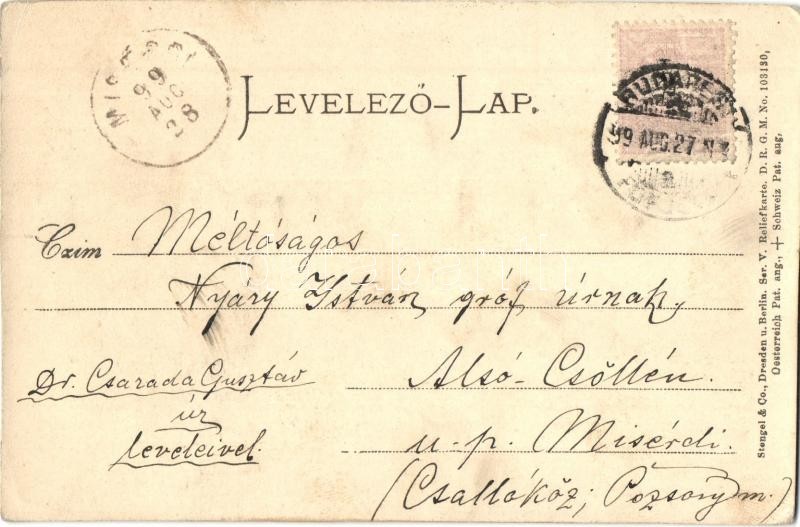 LEVELEZŐ-LAP.
MISÉRDI
99
AUG
28
BUDAPEST
99 AUG. 27
Czim Méltóságos
Nyáry István gróf úrnak,
Dr. Csarada Gusztáv
úr
leveleivel.
Alsó-Csöllén.
u-p. Misérdi.
(Csallóköz; Pozsony m.)
Stengel & Co., Dresden u. Berlin. Ser. V. Reliefkarte. D. R. G. M. No. 103130,
Oesterreich Pat. ang., + Schweiz Pat. ang.